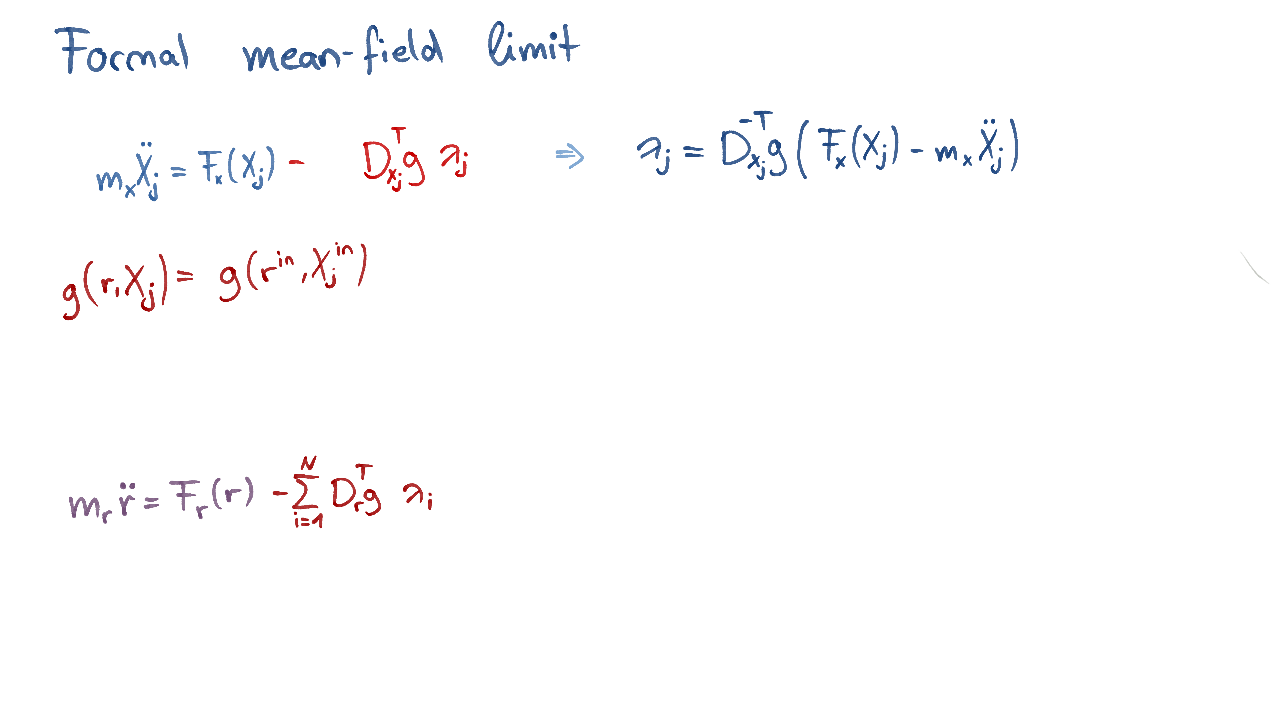 Formal mean-field limit
m_x Ẍ_j = F_x(X_j) - D_{x_j}^T g λ_j ⇒ λ_j = D_{x_j}^{-T} g ( F_x(X_j) - m_x Ẍ_j )
g(r, X_j) = g(r^{in}, X_j^{in})
m_r r̈ = F_r(r) - \sum_{i=1}^{N} D_r^T g λ_i